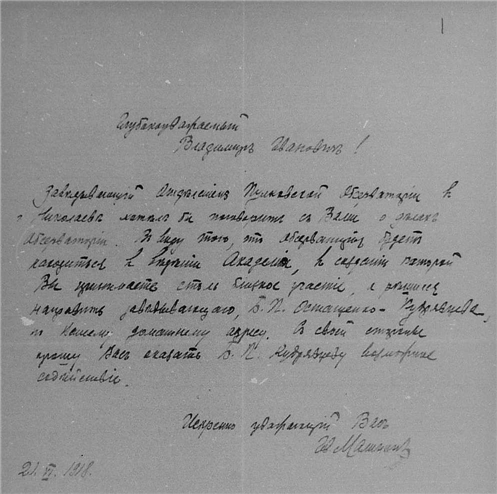 Глубокоуважаемый
Владимиръ Ивановичъ!
Завѣдывающій Отдѣленіем Пулковской Обсерваторіи в
Николаевѣ желалъ бы поговорить съ Вами о дѣлах
Обсерваторіи. В виду того, что обсерваторія будетъ
находиться в Академіи, в созданіи которой
Вы принимаете столь близкое участіе, я рѣшился
направить завѣдывающаго, Б. П. Осташенко-Кудрявцева,
по Вашему домашнему адресу. Съ своей стороны
прошу Васъ оказать Б. П. Кудрявцеву возможное
содѣйствіе.
Искренно уважающій Васъ
21. VI. 1918.